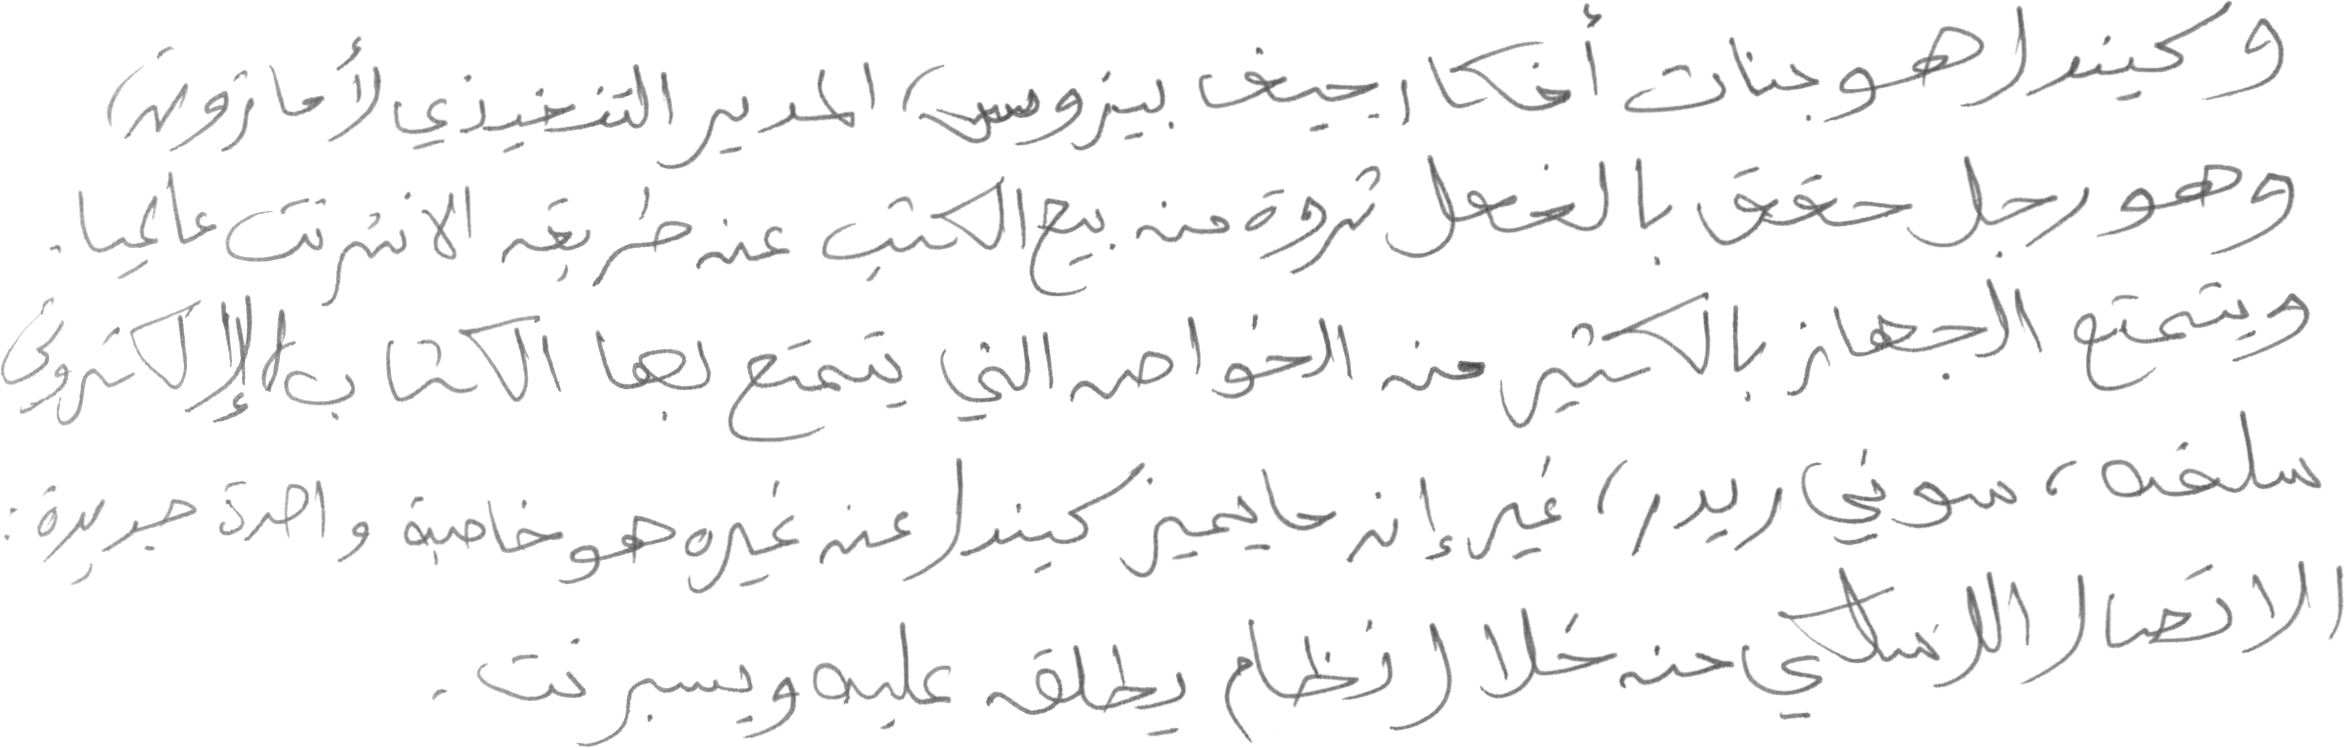 وكيندل هو جنات أفكار جيف بيزوس، المدير التنفيذي لأمازون،
وهو رجل حقق بالفعل ثروة من بيع الكتب عن طريق الانترنت عالميا.
ويتمتع الجهاز بالكثير من الخواص التي يتمتع بها الكتاب الإلكتروني
سلفه، سوني ريدر، غير إن ما يميز كيندل عن غيره هو خاصية واحدة جديدة:
الاتصال اللاسلكي من خلال نظام يطلق عليه ويسبرنت.